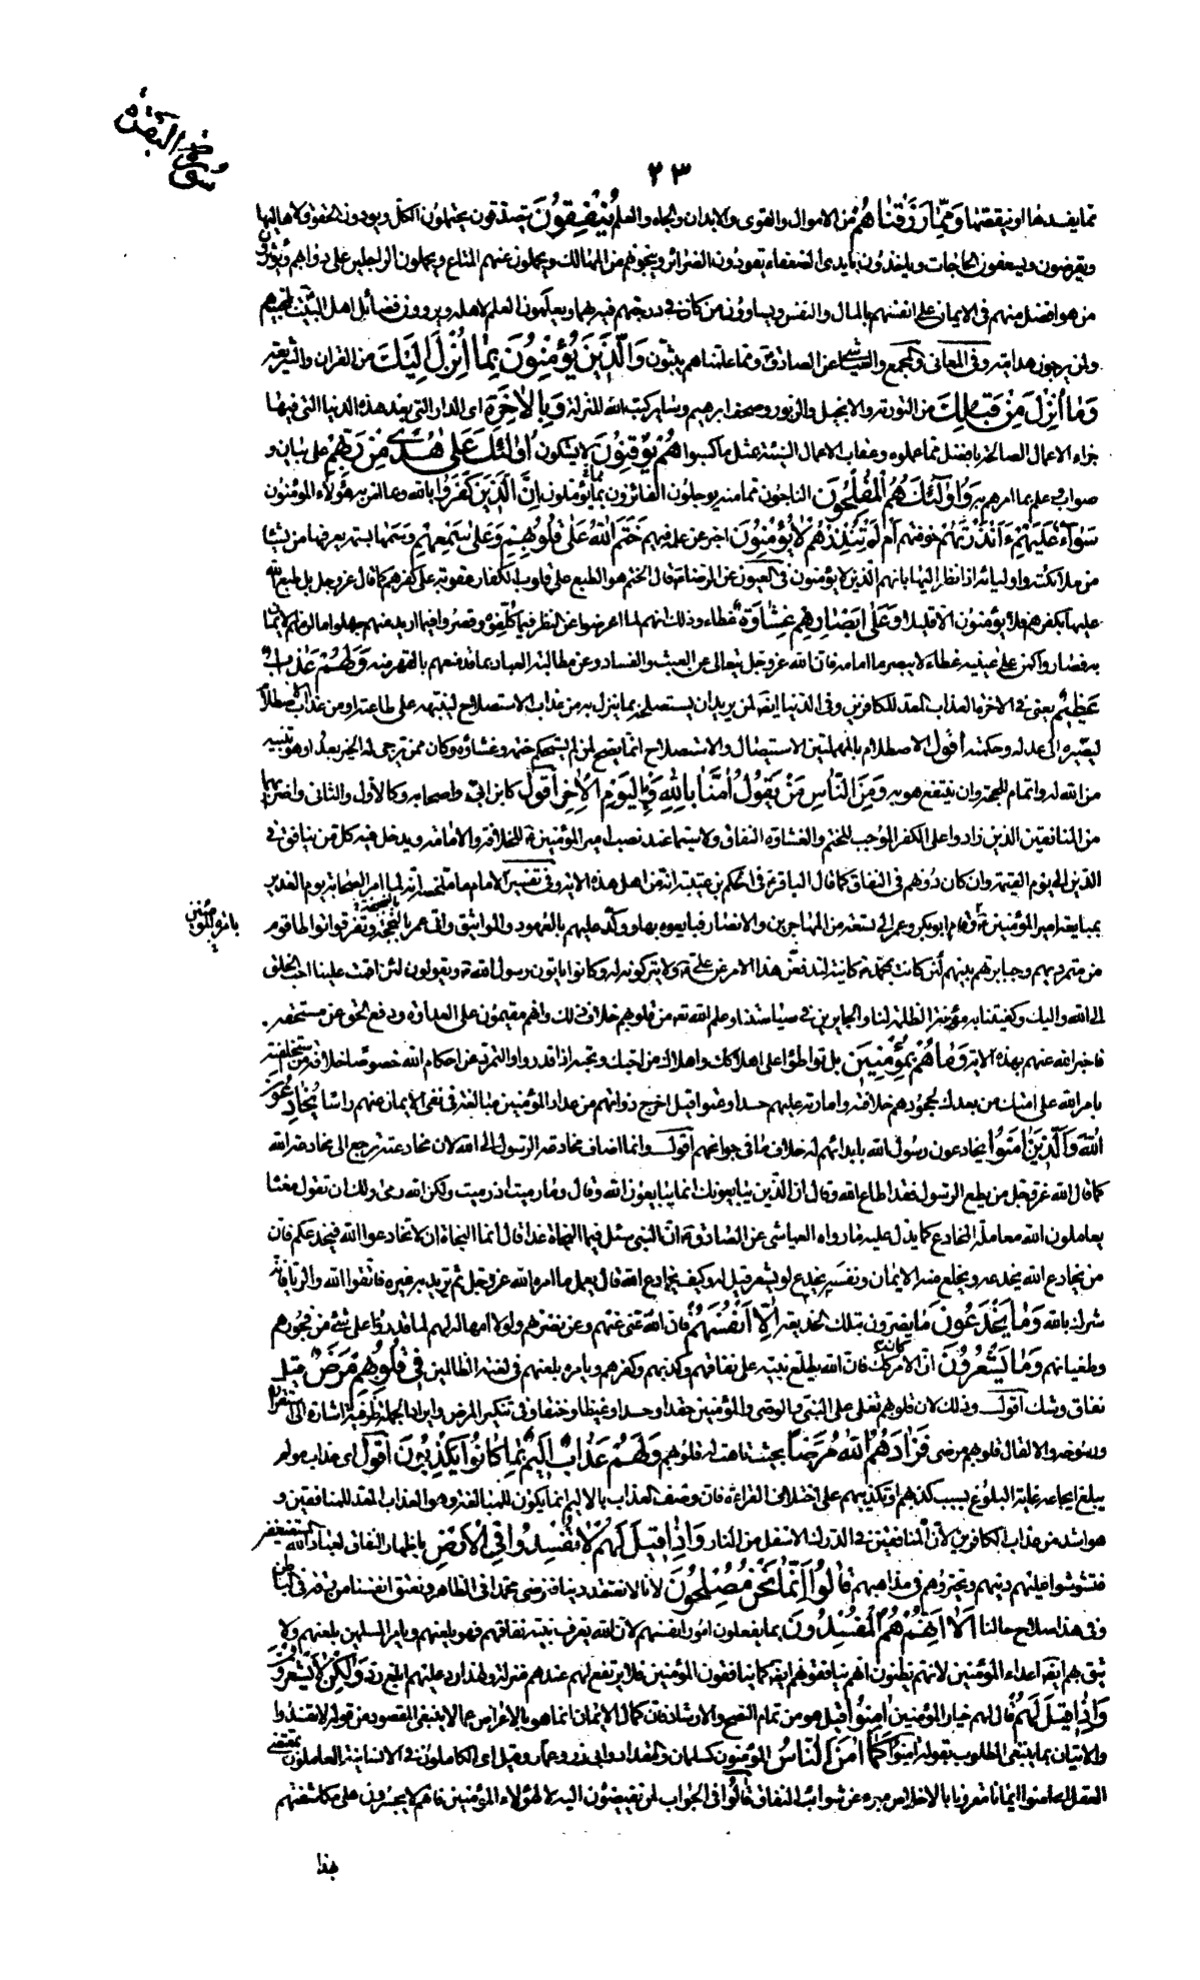 سورة البقرة
٢٣
مما يفسدها او ينقصها وَمِمّا رَزَقْناهُم من الاموال والقوى والابدان والجاه والعلم يُنْفِقُونَ يتصدقون يحتملون الكل ويودون الحقوق لاهاليها
ويقرضون ويسعفون الحاجات وياخذون بايدى الضعفاء يقودون الضرائر وينجونهم من المهالك ويحملون عنهم المتاع ويحملون الراجلين على دوابهم ويؤثرون
من هو افضل منهم فى الايمان على انفسهم بالمال والنفس ويساوون من كان فى درجتهم فيه بهما ويعلمون العلم لاهله ويروون فضائل اهل البيت لمحبيهم
ولمن يرجون هدايته وفى المعانى والمجمع والعياشى عن الصادق ومما علمناهم يبثون وَالَّذِينَ يُؤْمِنُونَ بِما أُنْزِلَ إِلَيْكَ من القران والشريعة
وَما أُنْزِلَ مِنْ قَبْلِكَ من التورية والانجيل والزبور وصحف ابرهيم وساير كتب الله المنزلة وَبِالْاخِرَةِ اى الدار التى بعد هذه الدنيا التى فيها
جزاء الاعمال الصالحة بافضل مما عملوه وعقاب الاعمال السيئة بمثل ما كسبوا هُمْ يُوقِنُونَ لا يشكون أُولئِكَ عَلى هُدىً مِنْ رَبِّهِمْ على بيان و
صواب وعلم بما امرهم به وَأُولئِكَ هُمُ الْمُفْلِحُونَ الناجون مما منه يوجلون الفائزون بما يؤملون إِنَّ الَّذِينَ كَفَرُوا بالله وبما امن به هؤلاء المؤمنون
سَواءٌ عَلَيْهِمْ ءَأَنْذَرْتَهُمْ خوفتهم أَمْ لَمْ تُنْذِرْهُمْ لا يُؤْمِنُونَ اخبر عن علمه فيهم خَتَمَ اللهُ عَلى قُلُوبِهِمْ وَعَلى سَمْعِهِمْ وسمها بسمة يعرفها من يشاء
من ملائكته واوليائه اذا نظر اليها بانهم الذين لا يؤمنون فى العيون عن الرضا قال الختم هو الطبع على قلوب الكفار عقوبة على كفرهم كما قال عز وجل بل طبع الله
عليها بكفرهم فلا يؤمنون الا قليلا وَعَلى أَبْصارِهِمْ غِشاوَةٌ غطاء وذلك انهم لما اعرضوا عن النظر فيما كلفوه وقصروا فيما اريد منهم جهلوا ما لزمهم الايمان
به فصاروا كمن على عينيه غطاء لا يبصر ما امامه فان الله عز وجل يتعالى عن العبث والفساد وعن مطالبة العباد بما قد منعهم بالقهر منه وَلَهُمْ عَذابٌ
عَظِيمٌ يعنى فى الاخرة العذاب المعد للكافرين وفى الدنيا ايضا لمن يريد ان يستصلحه بما ينزل به من عذاب الاستصلاح لينبهه على طاعته او من عذاب الاصطلام
ليصيره الى عدله وحكمته أقول الاصطلام بالمهملتين الاستيصال والاستصلاح انما يصح لمن لم يستحكم ختمه وغشاوة وكان ممن ترجى له الخير بعد او هو تنبيه
من الله له واتمام للحجة وان لم ينتفع هو به وَمِنَ النّاسِ مَنْ يَقُولُ أمَنّا بِاللهِ وَبِالْيَوْمِ الْاخِرِ أقول كابن ابى واصحابه وكالاول والثانى واضرابهما
من المنافقين الذين زادوا على الكفر الموجب للختم والغشاوة النفاق ولا سيما عند نصب امير المؤمنين للخلافة والامامة ويدخل فيه كل من ينافق فى
الدين الى يوم القيمة وان كان دونهم فى النفاق كما قال الباقر فى الحكم بن عتيبة انه من اهل هذه الاية وفى تفسير الامام ما ملخصه انه لما امر الصحابة يوم الغدير
بمبايعة امير المؤمنين وقام ابو بكر وعمر الى تسعة من المهاجرين والانصار فبايعوه بها ووكد عليهم بالعهود والمواثيق واتى عمر بالبخبخة وتفرقوا تواطا قوم
بامرة المؤمنين
من متمرديهم وجبابرتهم بينهم لئن كانت بمحمد كائنة لندفعن هذا الامر عن على ولا يتركونه له وكانوا ياتون رسول الله ويقولون لقد اقمت علينا احب الخلق
الى الله واليك وكفيتنا به مؤنة الظلمة لنا والجايرين فى سياستنا وعلم الله تعه من قلوبهم خلاف ذلك وانهم مقيمون على العداوة ودفع الحق عن مستحقه
فاخبر الله عنهم بهذه الاية وَما هُمْ بِمُؤْمِنِينَ بل تواطؤا على اهلاكك واهلاك من احبك وتحبه اذا قدروا والتمرد عن احكام الله خصوصا خلافة من استخلفته
بامر الله على امتك من بعدك لجحودهم خلافته وامارته عليهم حسدا وعتوا قيل اخرج ذواتهم من عداد المؤمنين مبالغة فى نفى الايمان عنهم راسا يُخادِعُونَ
اللهَ وَالَّذِينَ امَنُوا يخادعون رسول الله بابدائهم له خلاف ما فى جوانحهم أقول وانما اضاف مخادعة الرسول الى الله لان مخادعته ترجع الى مخادعة الله
كما قال الله عز وجل من يطع الرسول فقد اطاع الله وقال ان الذين يبايعونك انما يبايعون الله وقال وما رميت اذ رميت ولكن الله رمى ولك ان تقول معناه
يعاملون الله معاملة المخادع كما يدل عليه ما رواه العياشى عن الصادق ان النبى سئل فيما النجاة غدا قال انما النجاة ان لا تخادعوا الله فيخدعكم فان
من يخادع الله يخدعه ويخلع منه الايمان ونفسه يخدع لو يشعر قيل له وكيف يخادع الله قال يعمل ما امره الله عز وجل ثم يريد به غيره فاتقوا الله والريا فانه
شرك بالله وَما يَخْدَعُونَ ما يضرون بتلك الخديعة إِلّا أَنْفُسَهُمْ فان الله غنى عنهم وعن نصرتهم ولولا امهاله لهم لما قدروا على شئ من فجورهم
وطغيانهم وَما يَشْعُرُونَ ان الامر كذلك فان الله يطلع نبيه على نفاقهم وكذبهم وكفرهم ويامره بلعنهم فى لعنة الظالمين فِي قُلُوبِهِمْ مَرَضٌ قيل
نفاق وشك أقول وذلك لان قلوبهم تغلى على النبى والوصى والمؤمنين حقدا وحسدا وغيظا وخنقا وفى تنكير المرض وايراد الجملة ظرفية اشارة الى استقراره
ورسوخه والا لقال قلوبهم مرضى فَزادَهُمُ اللهُ مَرَضاً بحيث تاهت له قلوبهم وَلَهُمْ عَذابٌ أَلِيمٌ بِما كانُوا يَكْذِبُونَ أقول اى عذاب مولم
يبلغ ايجاعه غاية البلوغ بسبب كذبهم او تكذيبهم على اختلاف القراءة فان وصف العذاب بالاليم انما يكون للمبالغة وهو العذاب المعد للمنافقين و
هو اشد من عذاب الكافرين لان المنافقين فى الدرك الاسفل من النار وَإِذا قِيلَ لَهُمْ لا تُفْسِدُوا فِي الْأَرْضِ باظهار النفاق لعباد الله المستضعفين
فتشوشوا عليهم دينهم وتحيروهم فى مذاهبهم قالُوا إِنَّما نَحْنُ مُصْلِحُونَ لانا لا نعتقد دينا فنرضى محمدا فى الظاهر ونعتق انفسنا من رقه فى الباطن
وفى هذا صلاح حالنا أَلا إِنَّهُمْ هُمُ الْمُفْسِدُونَ بما يفعلون امور انفسهم لان الله يعرف نبيه نفاقهم فهو يلعنهم ويامر المسلمين بلعنهم ولا
يثق بهم ايضا اعداء المؤمنين لانهم يظنون انهم ينافقونهم ايضا كما ينافقون المؤمنين فلا يرتفع لهم عندهم منزلة ولهذا رد عليهم ابلغ رد وَلكِنْ لا يَشْعُرُونَ
وَإِذا قِيلَ لَهُمْ قال لهم خيار المؤمنين امِنُوا قيل هو من تمام النصح والارشاد فان كمال الايمان انما هو بالاعراض عما لا ينبغى المقصود من قوله لا تفسدوا
والاتيان بما ينبغى المطلوب بقوله امنوا كَما امَنَ النّاسُ المؤمنون كسلمان والمقداد وابى ذر وعمار وقيل اى الكاملون فى الانسانية العاملون بمقتضى
العقل اى امنوا ايمانا مقرونا بالاخلاص مبره عن شوائب النفاق قالُوا فى الجواب لمن يفيضون اليه لا لهؤلاء المؤمنين فانهم لا يجسرون على مكاشفتهم
بهذا